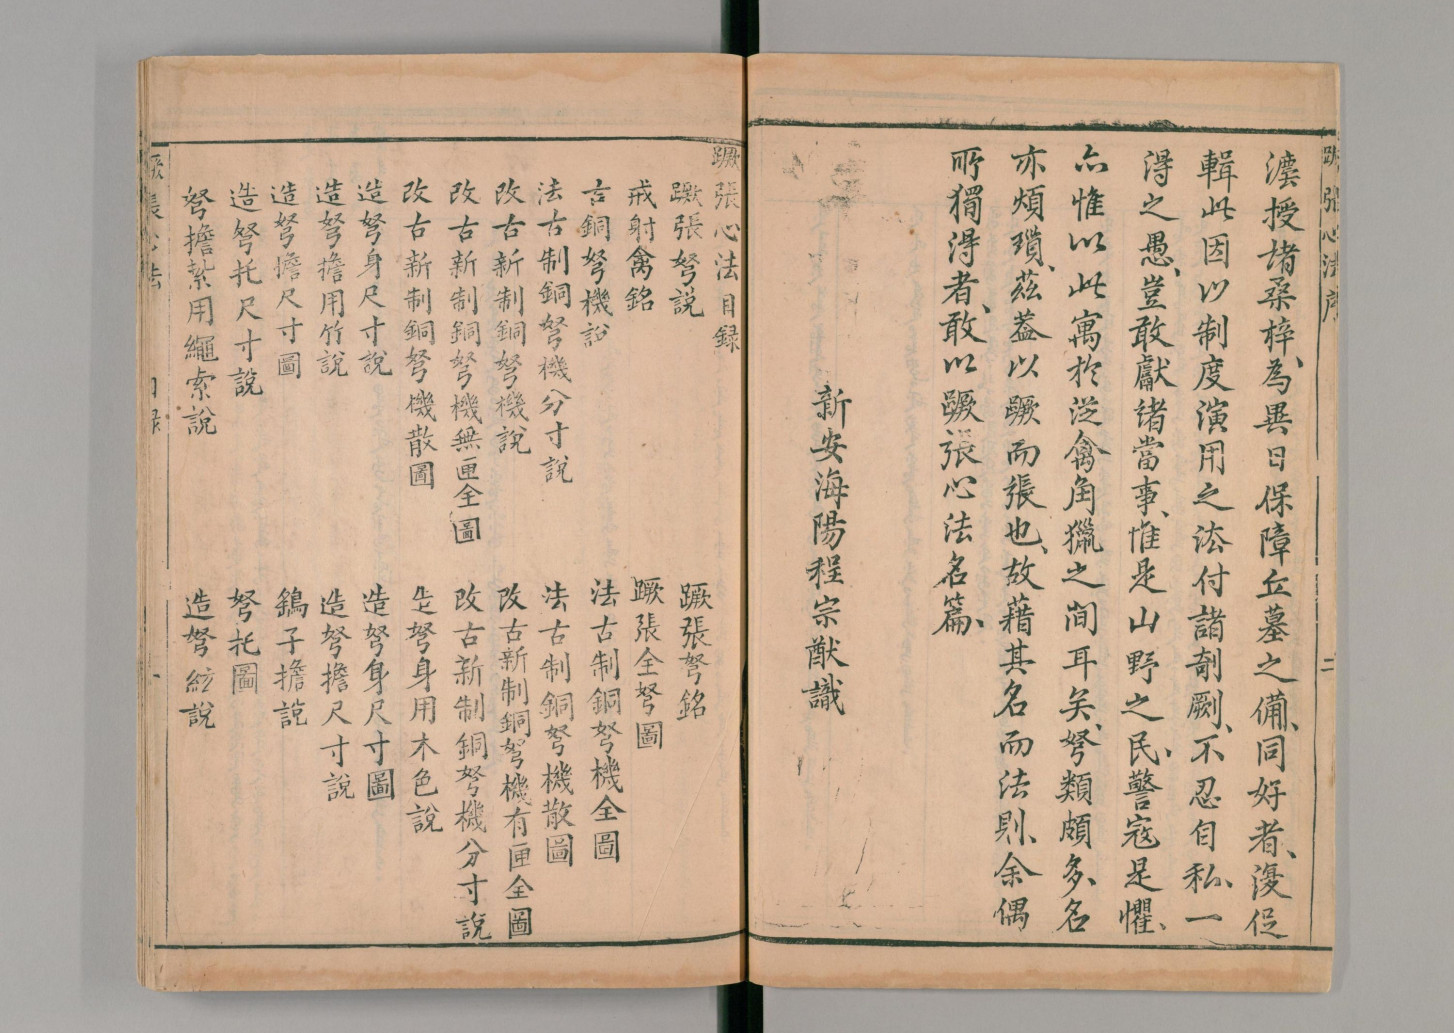 蹶張心法序
漫授諸桑梓、為異日保障丘墓之備、同好者、漫促
輯此因以制度演用之法付諸剞劂、不忍自私、一
得之愚、豈敢獻諸當事、惟是山野之民、警寇是懼、
亦惟以此寓於從禽角獵之間耳矣、弩類頗多、名
亦煩瑣、茲蓋以蹶而張也、故藉其名而法則、余偶
所獨得者、敢以蹶張心法名篇、
新安海陽程宗猷識
二
蹶張心法目録
蹶張弩説 蹶張弩銘
戒射禽銘 蹶張全弩圖
古銅弩機説 法古制銅弩機全圖
法古制銅弩機分寸説 法古制銅弩機散圖
改古新制銅弩機説 改古新制銅弩機有匣全圖
改古新制銅弩機無匣全圖 改古新制銅弩機分寸説
改古新制銅弩機散圖 造弩身用木色説
造弩身尺寸説 造弩身尺寸圖
造弩擔用竹説 造弩擔尺寸説
造弩擔尺寸圖 鷂子擔説
造弩托尺寸説 弩托圖
弩擔紮用繩索説 造弩絃説
蹶張心法 目録 一